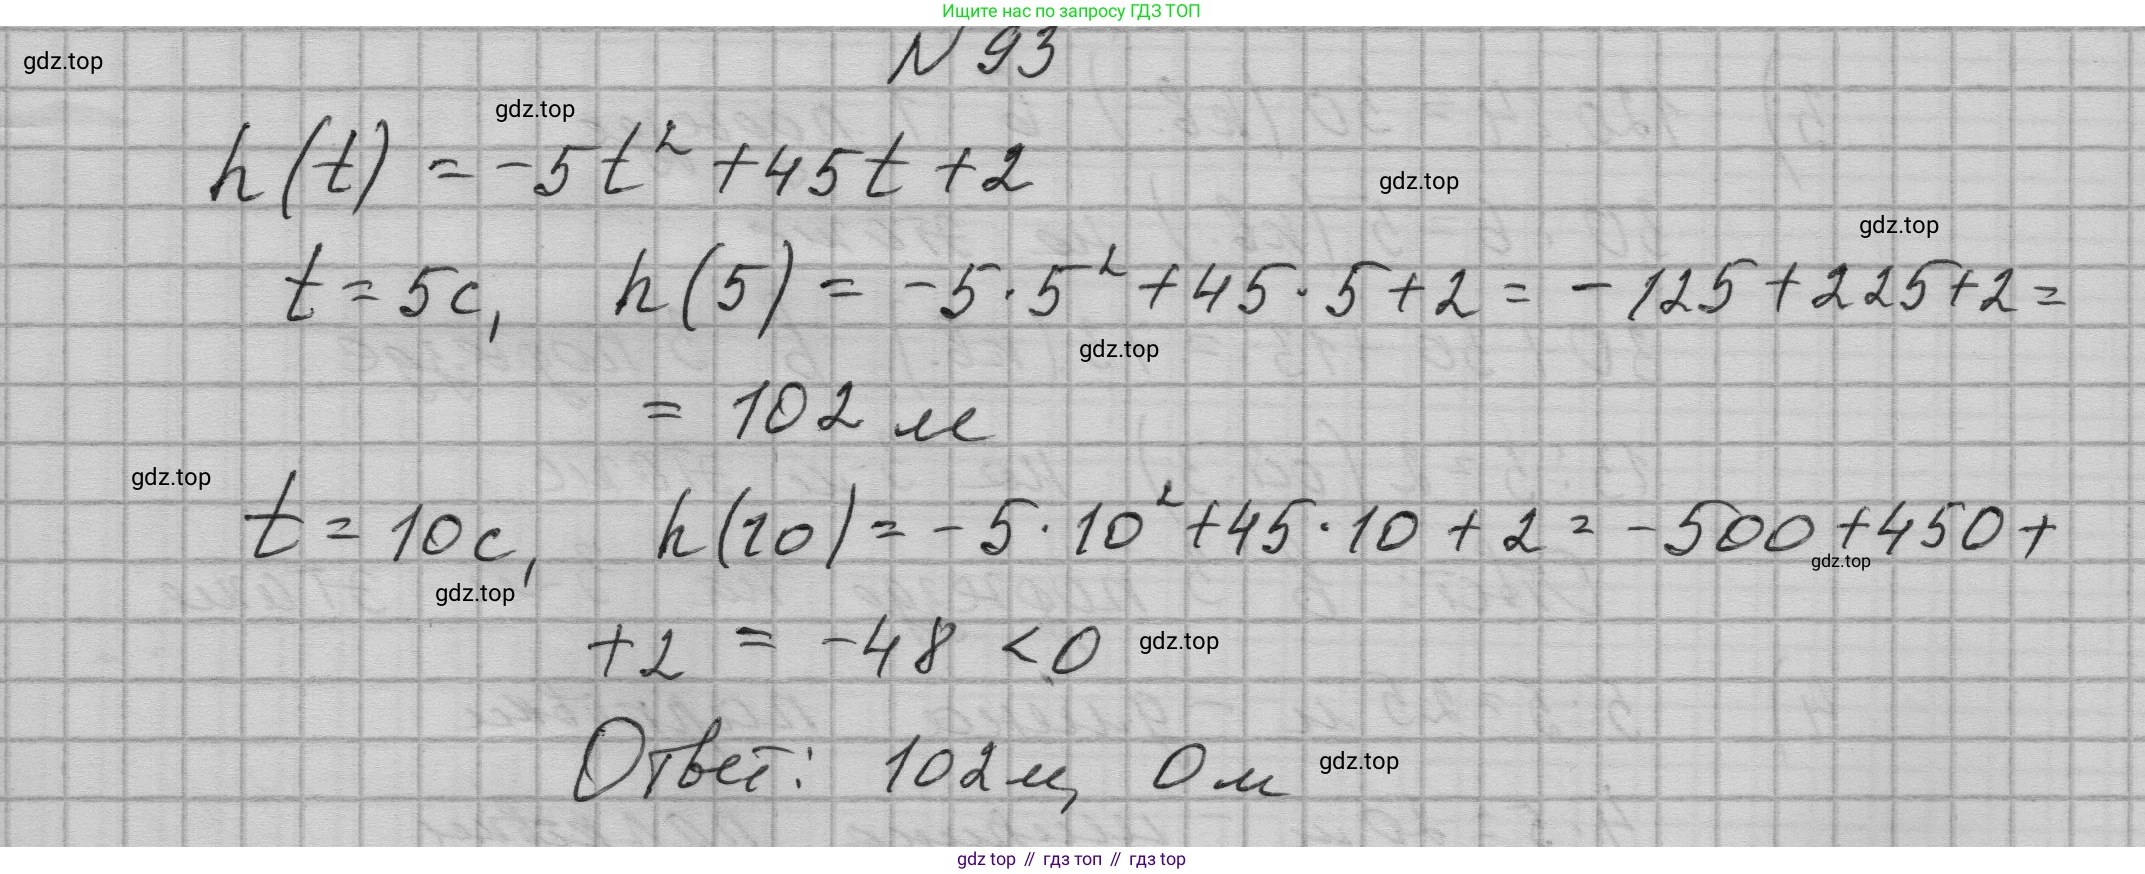 Ищите нас по запросу ГДЗ ТОП
N 93
gdz.top
gdz.top
h(t) = -5t² + 45t + 2
gdz.top
gdz.top
t = 5с, h(5) = -5·5² + 45·5 + 2 = -125 + 225 + 2 =
gdz.top
= 102 м
gdz.top
t = 10с, h(10) = -5·10² + 45·10 + 2 = -500 + 450 +
gdz.top
gdz.top
+2 = -48 < 0
gdz.top
Ответ: 102м, 0м
gdz.top
gdz top // гдз топ // гдз top